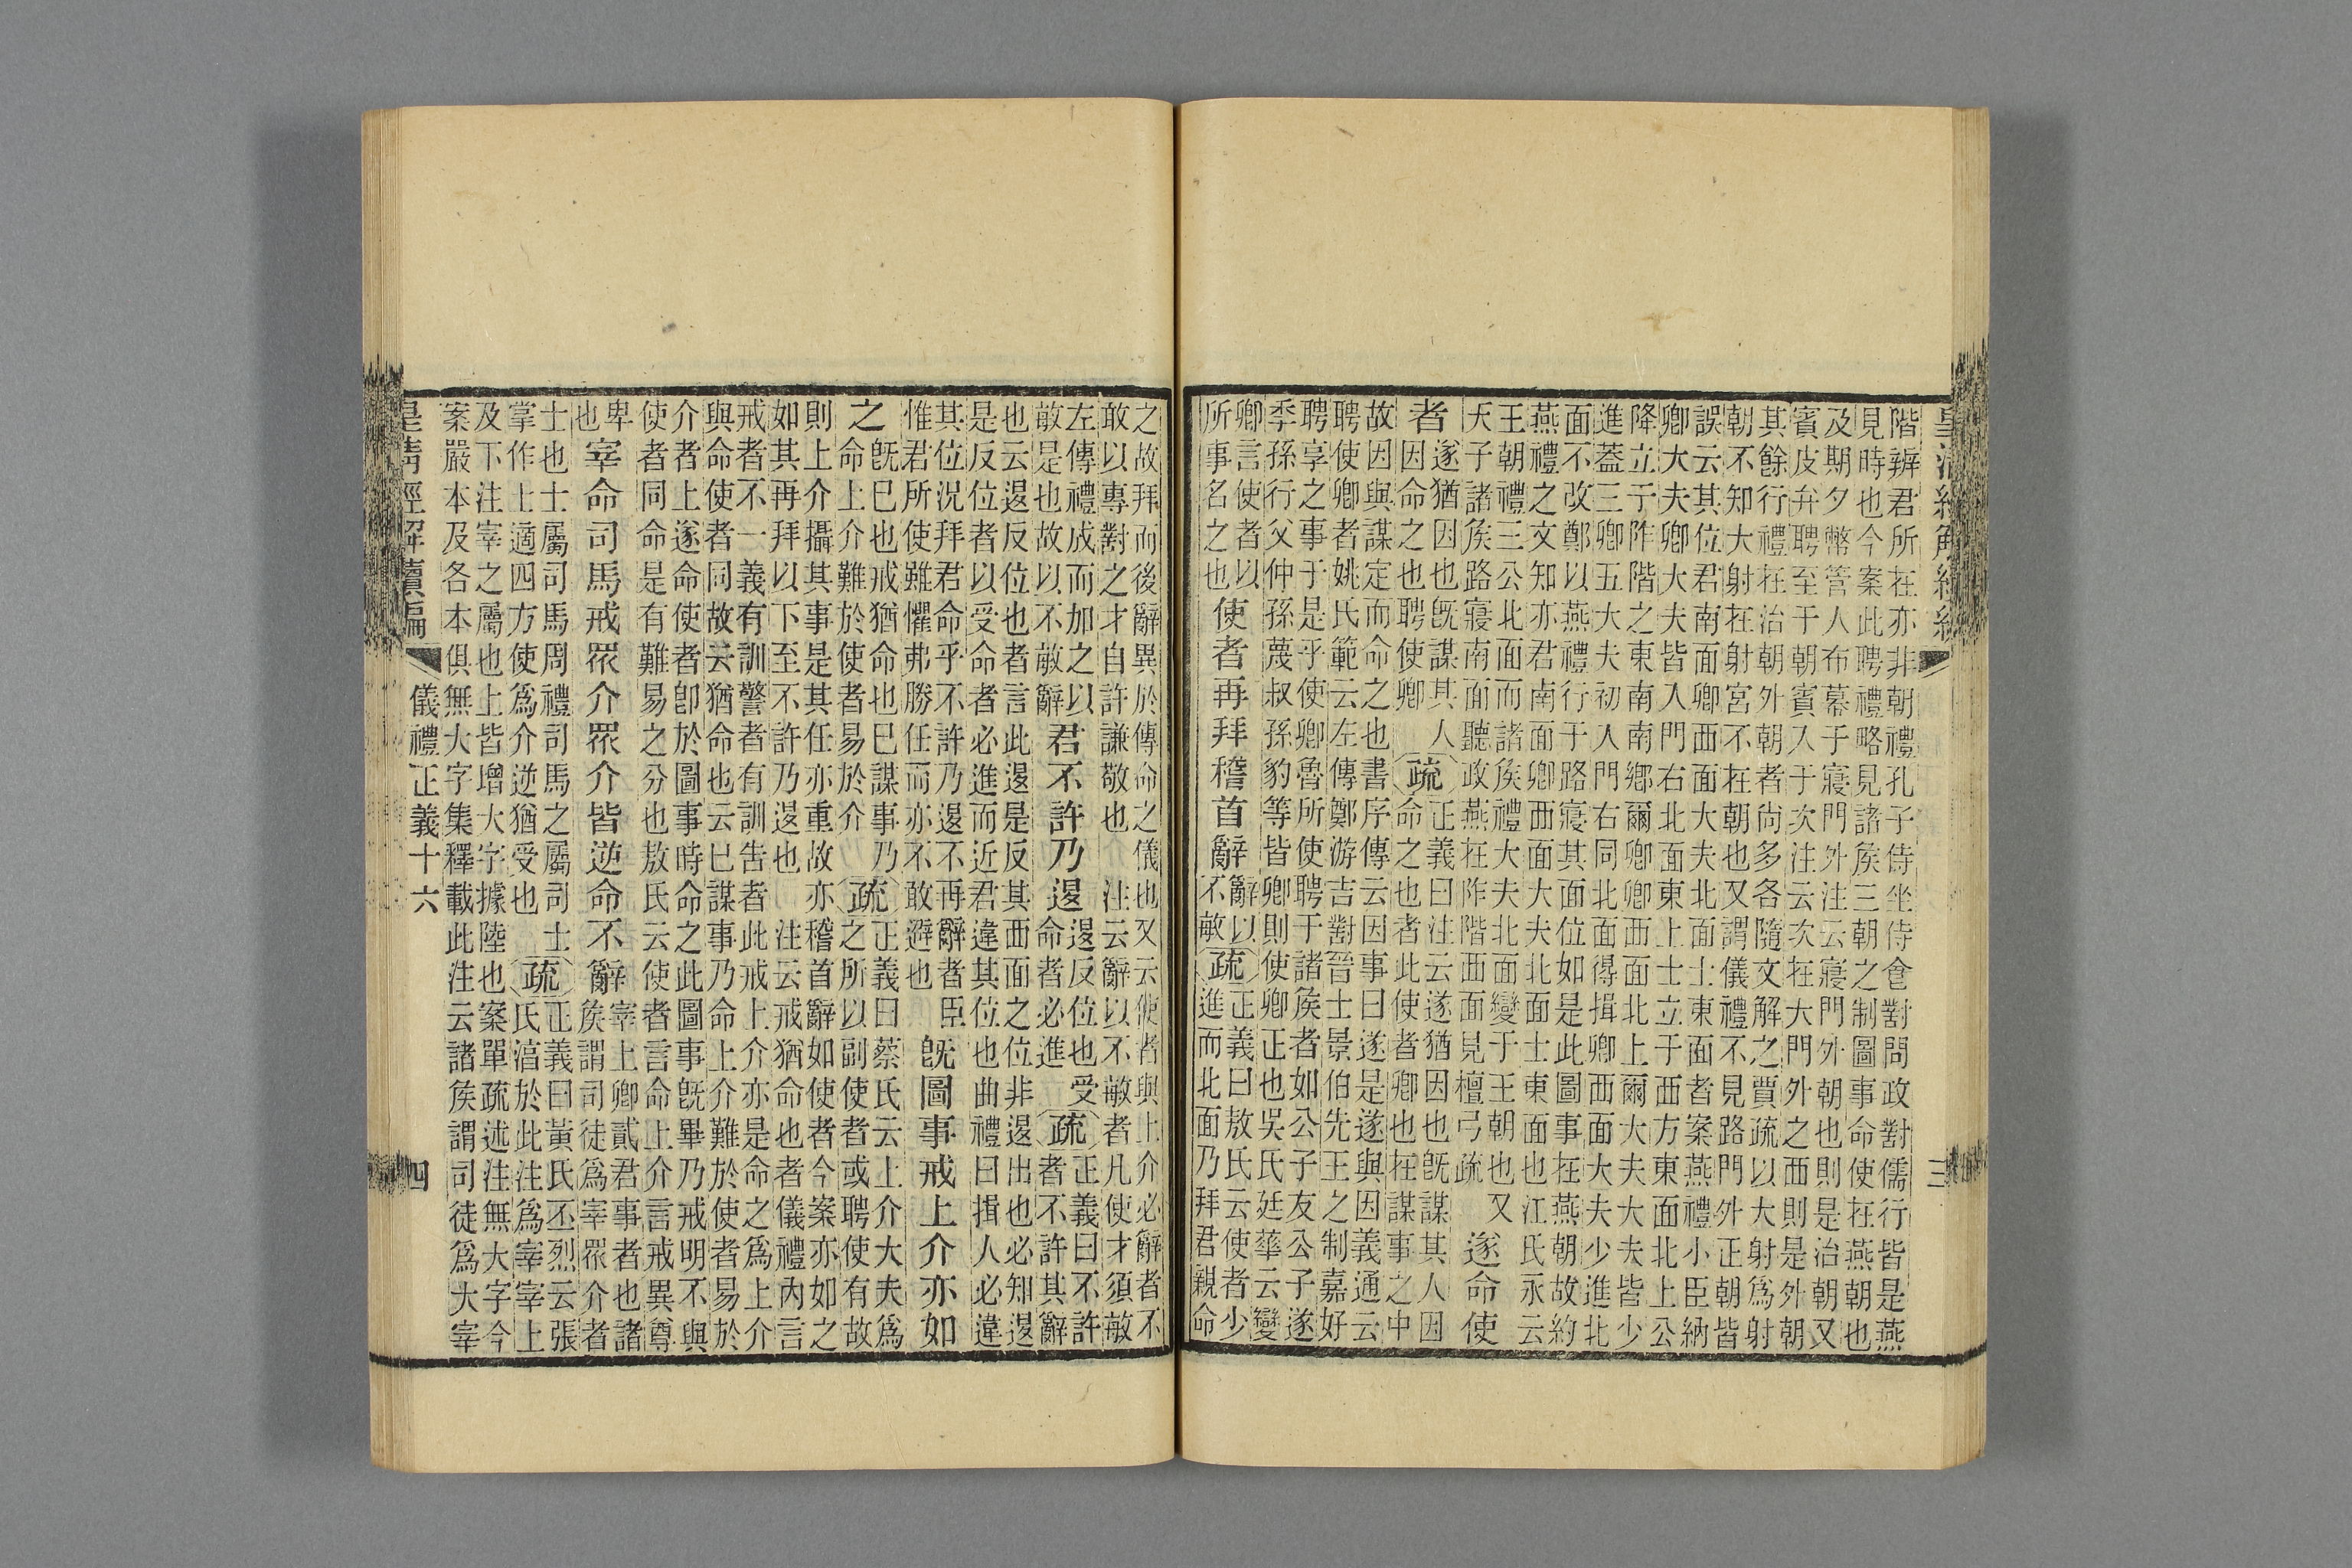 皇清經解續編 三
階辨君所在亦非朝禮孔子侍坐侍食對問政對儒行皆是燕
見時也今案此聘禮略見諸矦三朝之制圖事命使在燕朝也
及期夕幣管人布幕于寢門外注云寢門外朝也則是治朝又
賓皮弁聘至于朝賓入于次注云次在大門外之西則是外朝
其餘行禮在治朝外朝者尚多各隨文解之賈疏以大射爲射
朝不知大射在射宮不在朝也又謂儀禮不見路門外正朝皆
誤云其位君南面卿西面大夫北面士東面者案燕禮小臣納
卿大夫卿大夫皆入門右北面東上士立于西方東面北上公
降立于阼階之東南南鄉爾卿卿西面北上爾大夫大夫皆少
進蓋三卿五大夫初入門右同北面得揖卿西面大夫少進北
面不改鄭以燕禮行于路寢其面位如是此圖事在燕朝故約
燕禮之文知亦君南面卿西面大夫北面士東面也江氏永云
王朝禮三公北面而諸矦禮大夫北面變于王朝也又
天子諸矦路寢南面聽政燕在阼階西面見檀弓疏
遂命使
者
遂猶因也既謀其人
因命之也聘使卿
疏
正義曰注云遂猶因也既謀其人因
命之也者此使者卿也在謀事之中
故因與謀定而命之也書序傳云因事曰遂是遂與因義通云
聘使卿者姚氏範云左傳鄭游吉對晉士景伯先王之制嘉好
聘享之事于是乎使卿魯所使聘于諸矦者如公子友公子遂
季孫行父仲孫蔑叔孫豹等皆卿則使卿正也吳氏廷華云變
卿言使者以
所事名之也
使者再拜稽首辭
辭以
不敏
疏
正義曰敖氏云使者少
進而北面乃拜君親命
之故拜而後辭異於傳命之儀也又云使者與上介必辭者不
敢以專對之才自許謙敬也 注云辭以不敏者凡使才須敏
左傳禮成而加之以
敏是也故以不敏辭
君不許乃退
退反位也受
命者必進
疏
正義曰不許
者不許其辭
也云退反位也者言此退是反其西面之位非退出也必知退
是反位者以受命者必進而近君違其位也曲禮曰揖人必違
其位況拜君命乎不許乃退不再辭者臣
惟君所使雖懼弗勝任而亦不敢避也
既圖事戒上介亦如
之
既已也戒猶命也已謀事乃
命上介難於使者易於介
疏
正義曰蔡氏云上介大夫爲
之所以副使者或聘使有故
則上介攝其事是其任亦重故亦稽首辭如使者今案亦如之
如其再拜以下至不許乃退也 注云戒猶命也者儀禮內言
戒者不一義有訓警者有訓告者此戒上介亦是命之爲上介
與命使者同故云猶命也云已謀事乃命上介難於使者易於
介者上遂命使者卽於圖事時命之此圖事既畢乃戒明不與
使者同命是有難易之分也敖氏云使者言命上介言戒異尊
卑
也
宰命司馬戒眾介眾介皆逆命不辭
宰上卿貳君事者也諸
矦謂司徒爲宰眾介者
士也士屬司馬周禮司馬之屬司士
掌作士適四方使爲介逆猶受也
疏
正義曰黃氏丕烈云張
氏淳於此注爲宰宰上
及下注宰之屬也上皆增大字據陸也案單疏述注無大字今
案嚴本及各本俱無大字集釋載此注云諸矦謂司徒爲大宰
皇清經解續編 儀禮正義十六 四